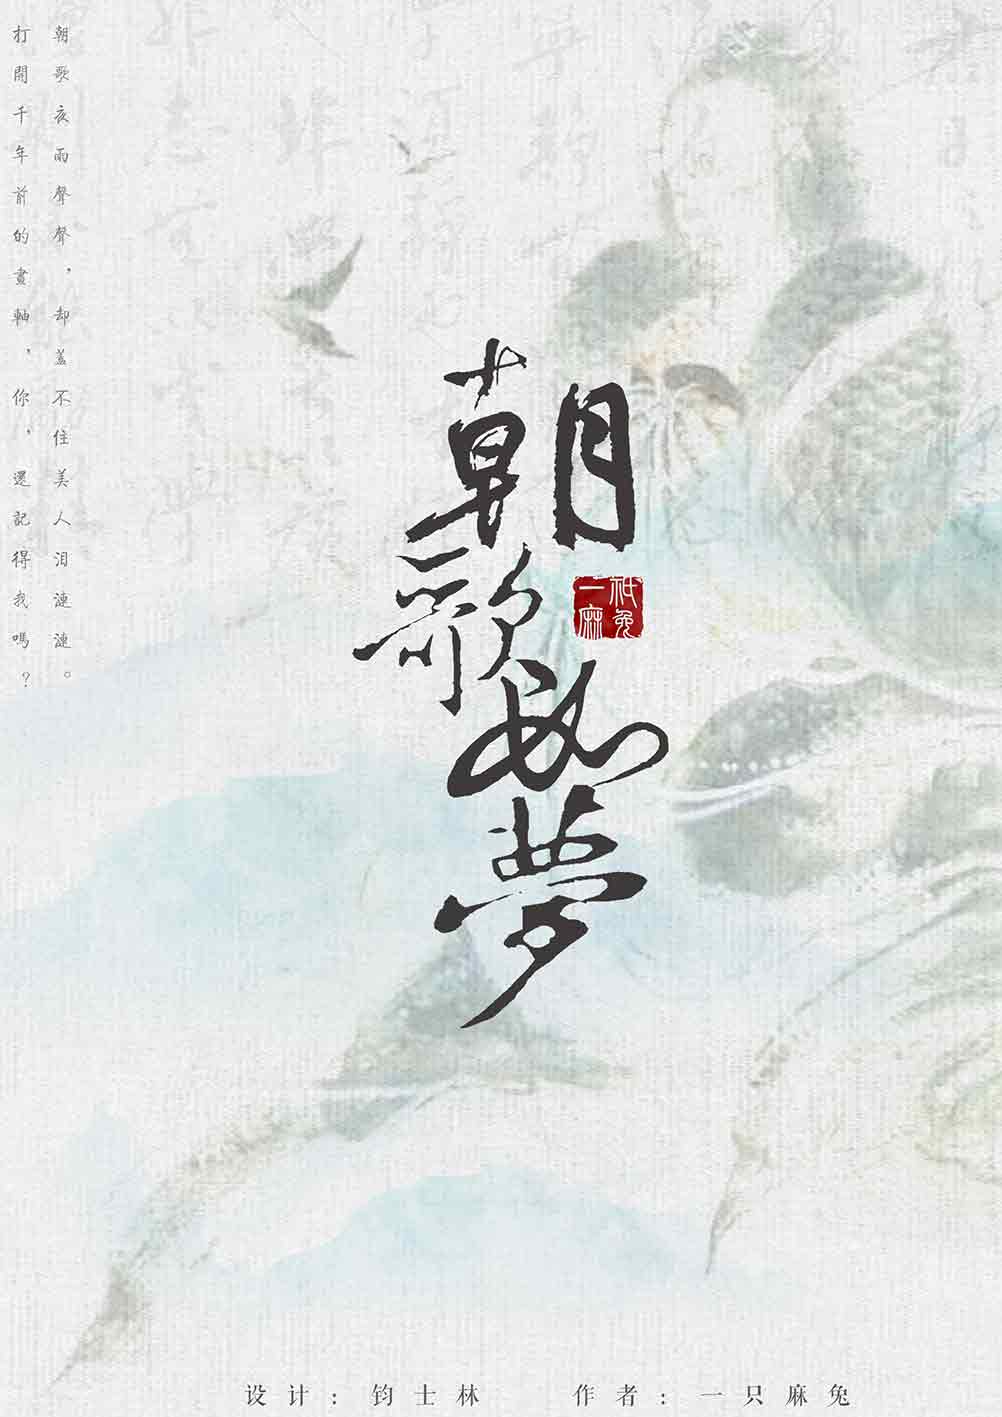 朝歌夜雨聲聲，却蓋不住美人泪漣漣。
打開千年前的畫軸，你，還記得我嗎？
朝歌如夢
一祗麻兔
设计：钧士林
作者：一只麻兔